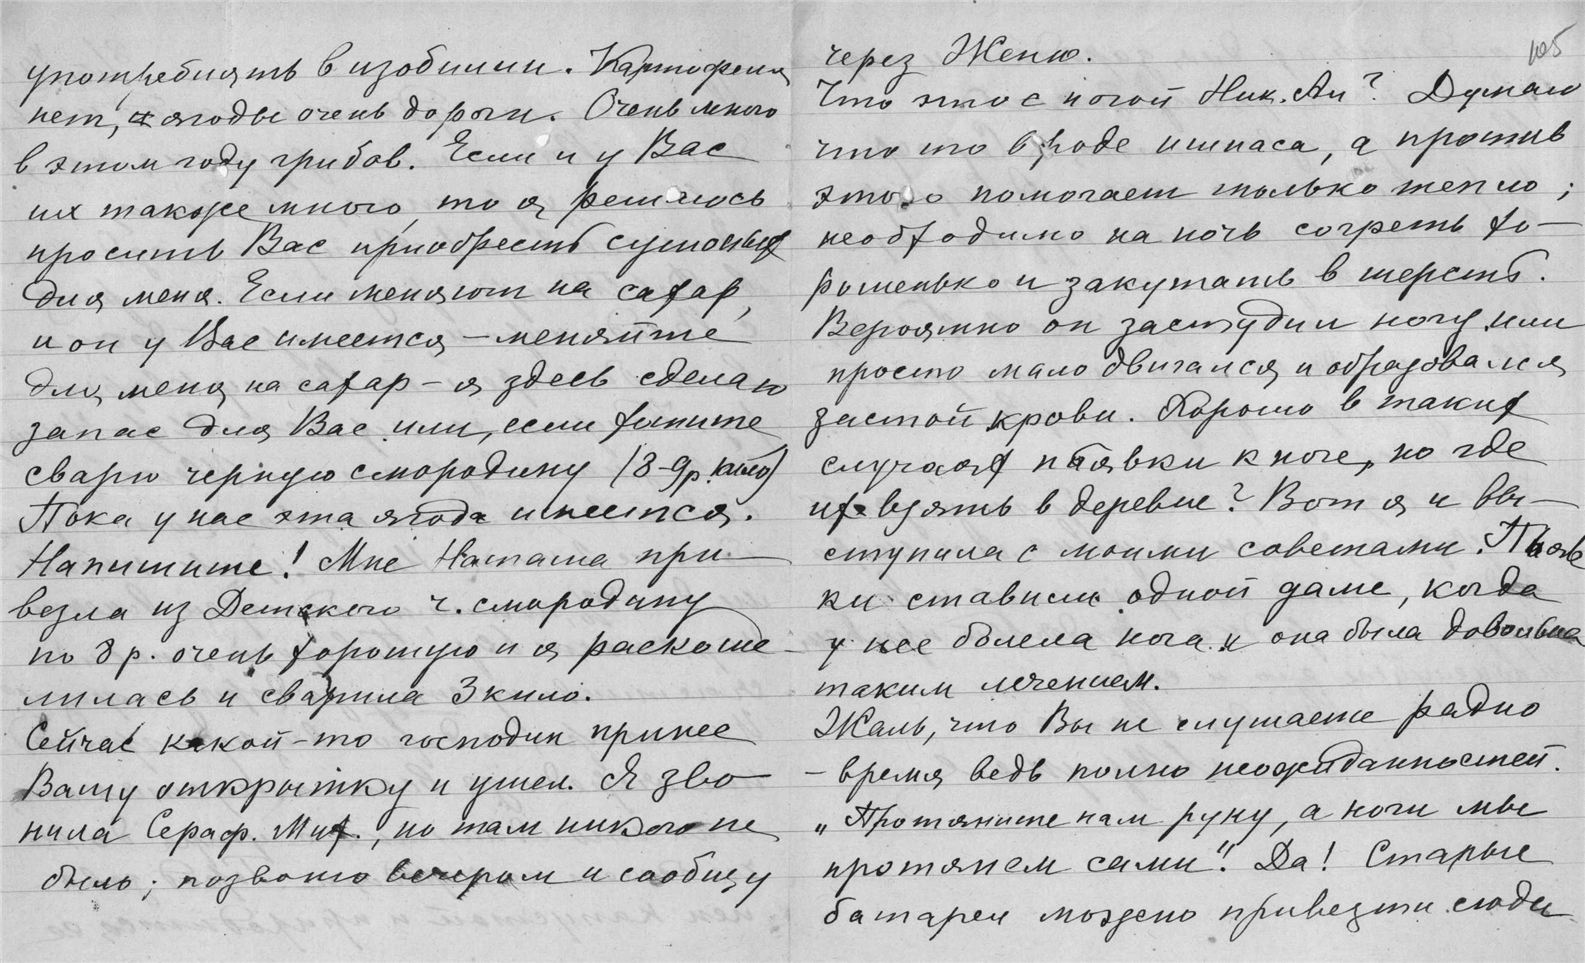 употреблять в изобилии. Картофеля
нет, ягоды очень дороги. Очень много
в этом году грибов. Если и у Вас
их также много, то я решаюсь
просить Вас приобресть сушоных
для меня. Если меняют на сахар,
и он у Вас имеется – меняйте
для меня на сахар – я здесь сделаю
запас для Вас или, если хотите
сварю черную смородину (8-9 р. кило)
Пока у нас эта ягода имеется.
Напишите! Мне Наташа при-
везла из Детского ч. смородину
по 8 р. очень хорошую и я раскоше-
лилась и сварила 3 кило.
Сейчас какой-то господин принес
Вашу открытку и ушел. Я зво-
нила Сераф. Мих., но там никого не
было; позвоню вечером и сообщу
105
через Женю.
Что это с ногой Ник. Ан? Думаю
что то вроде ишиаса, а против
этого помогает только тепло;
необходимо на ночь согреть хо-
рошенько и закутать в шерсть.
Вероятно он застудил ногу или
просто мало двигался и образовался
застой крови. Хорошо в таких
случаях пиявки к ноге, но где
их взять в деревне? Вот я и вы-
ступила с моими советами. Пияв-
ки ставили одной даме, когда
у нее болела нога и она была довольна
таким лечением.
Жаль, что Вы не слушаете радио
– время ведь полно неожиданностей.
„Протяните нам руку, а ноги мы
протянем сами"! Да! Старые
батареи можно привезти сюда